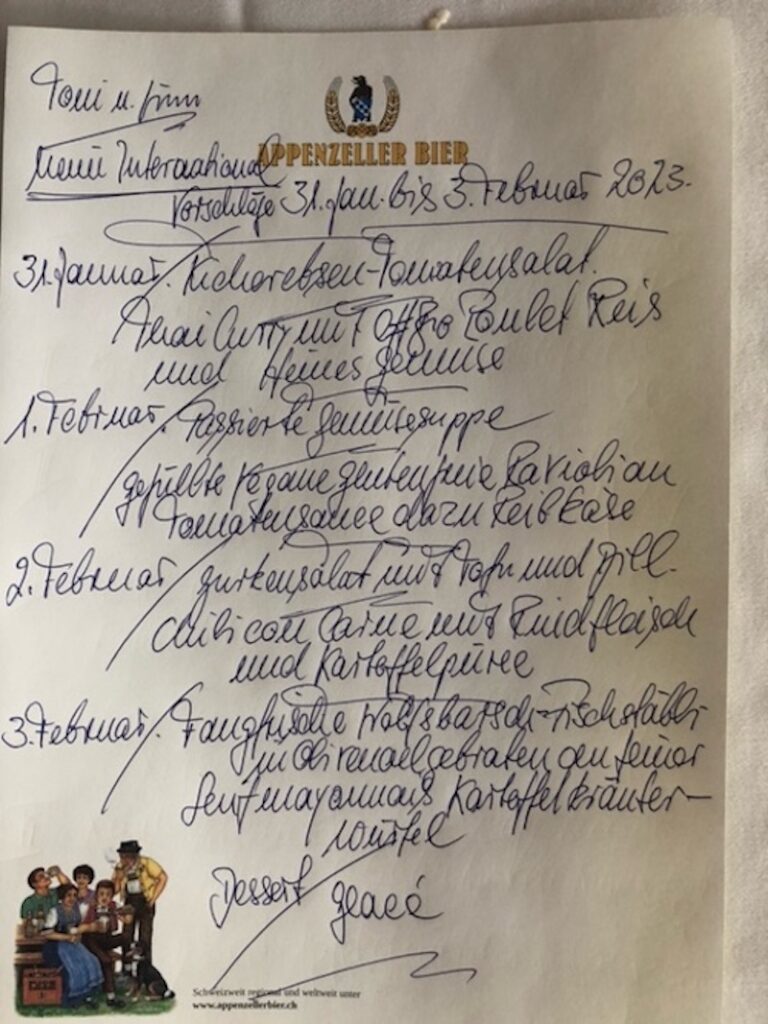 Toni u.
APPENZELLER BIER
Menü International
Vorschläge 31. Jan. bis 3. Februar 2023.
31. Januar. Kichererbsen-Tomatensalat.
Thai Curry mit Poulet Reis
und kleines Gemüse
1. Februar. Passierte Gemüsesuppe
gefüllte vegane glutenfreie Ravioli an
Tomatensauce dazu Reibkäse
2. Februar Gurkensalat mit Tofu und Dill.
Chili con Carne mit Rindfleisch
und Kartoffelpüree
3. Februar. Fangfrische Wolfsbarsch-Fischstäbli
in Olivenoel gebraten an feiner
Senfmayonnais Kartoffelkräuter-
würfel
Dessert Glacé
Schweizweit regional und weltweit unter
www.appenzellerbier.ch